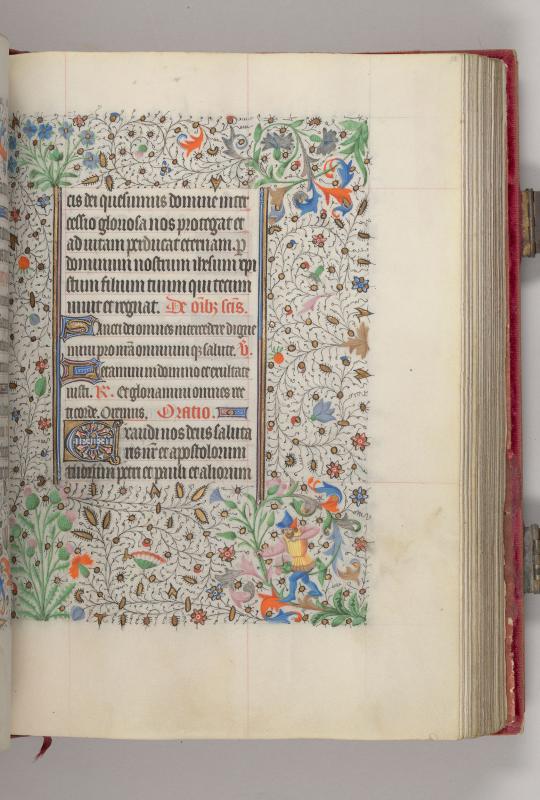 cis dei quesumus domine inter
cessio gloriosa nos protegat et
ad uitam perducat eternam. p
dominum nostrum ihesum xpi
stum filium tuum qui tecum
uiuit et regnat. De oibz scis.
Sancti dei omnes intercedere digne
mini pro nra omnium qz salute. V.
Letamini in domino et exultate
iusti. R. Et gloriamini omnes rec
ti corde. Oremus. Oratio.
Exaudi nos deus saluta
ris nr et apostolorum
tuorum petri et pauli et aliorum